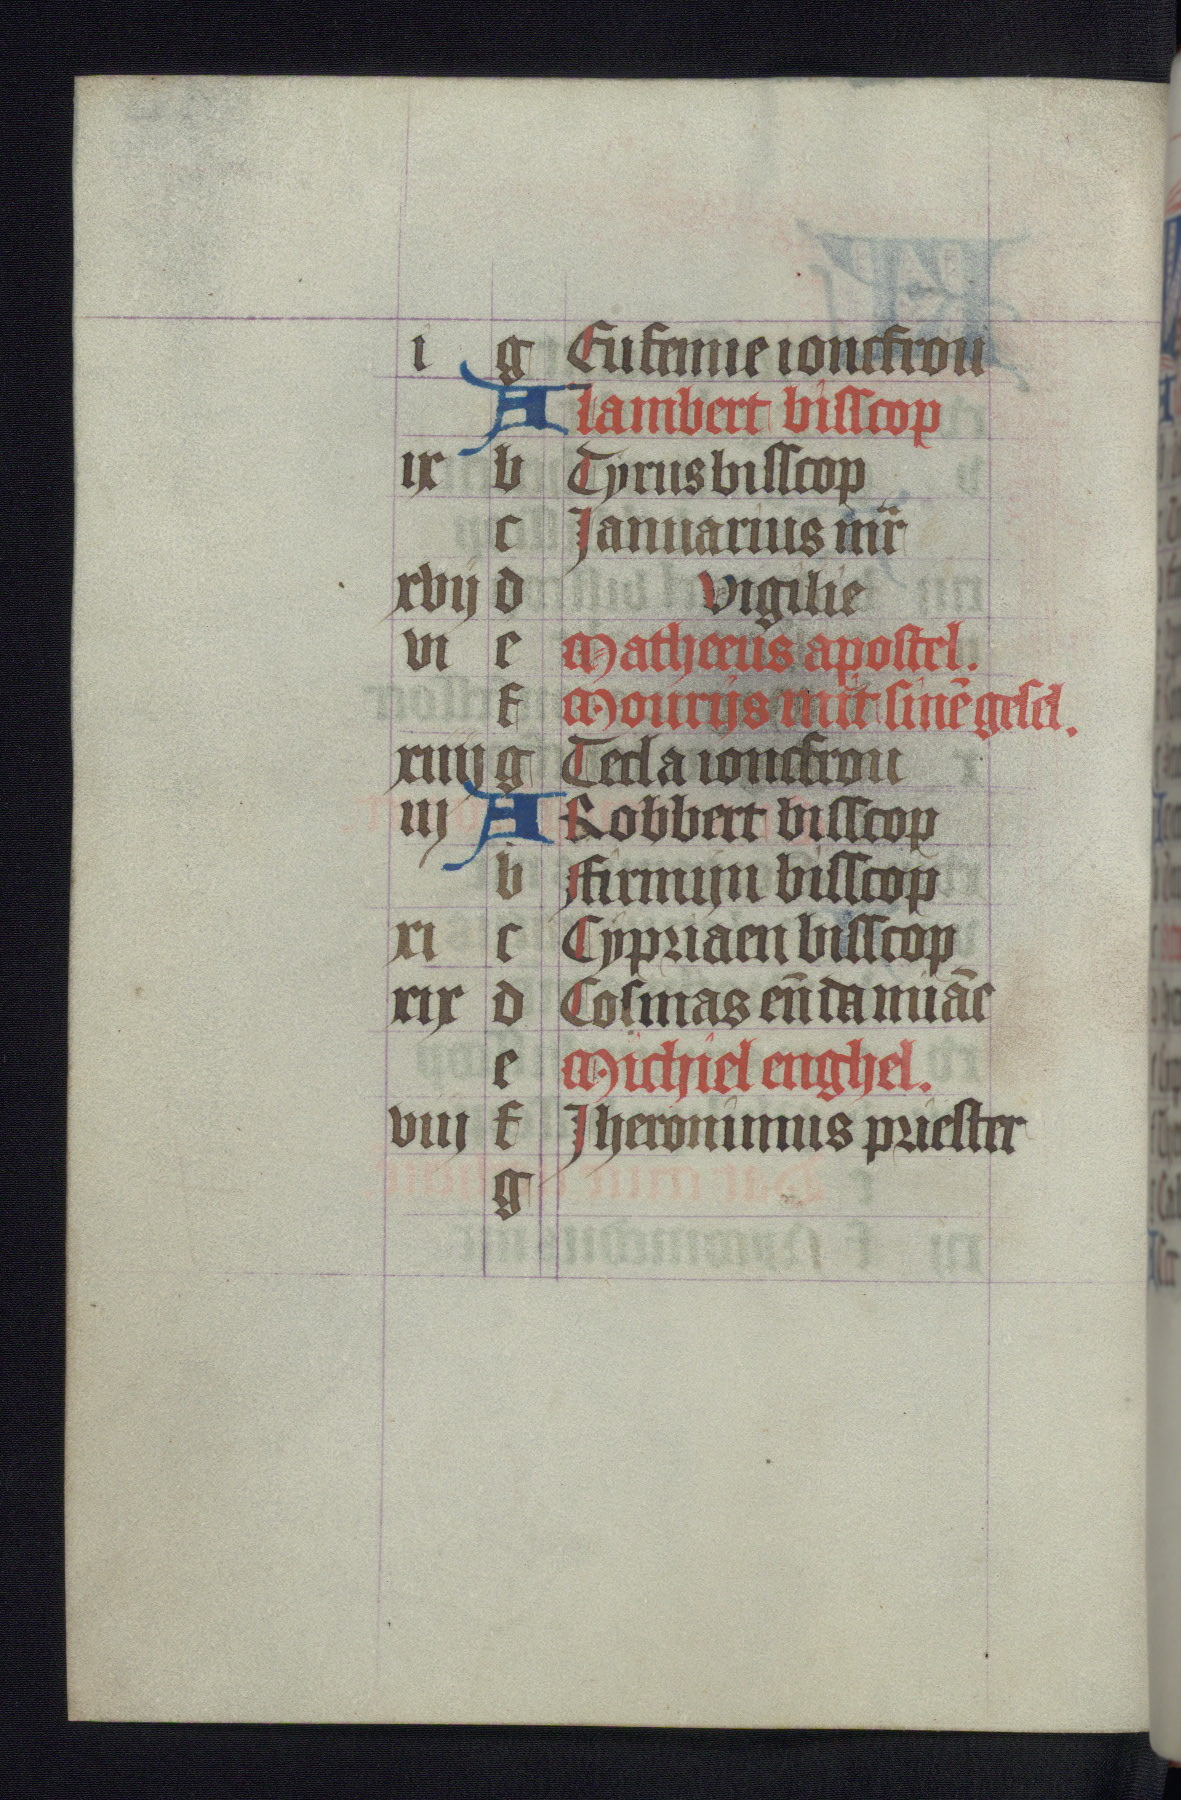 i g Eufemie ioncfrou
A lambert bisscop
ix b Tyrus bisscop
c Januarius mr̄
xvij d Vigilie
vi e Matheeus apostel.
f Mourijs mit sinē gesel.
xiiij g Tecla ioncfrou
iij A Robbert bisscop
b ffirmijn bisscop
xi c Cypriaen bisscop
xix d Cosmas eñ damiiāe
e Michiel enghel.
viij f Jheronimus priester
g